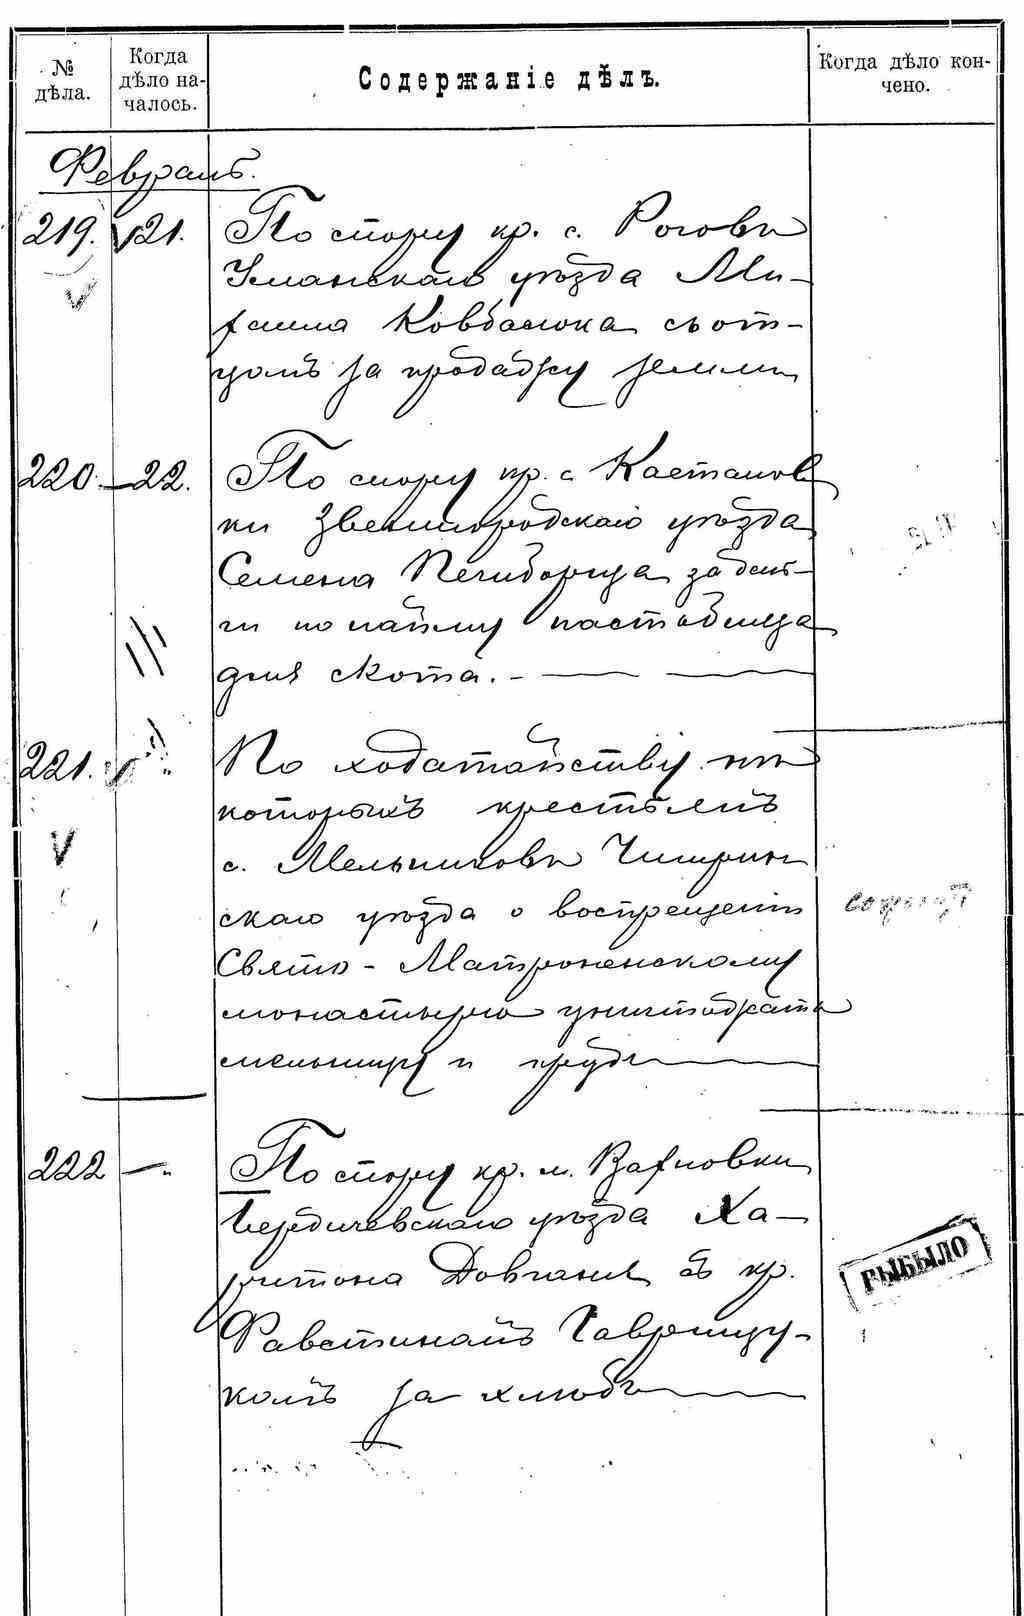 № дѣла.
Когда дѣло на-
чалось.
Содержаніе дѣлъ.
Когда дѣло кон-
чено.
Февраль.
219. 21. По спору кр. с. Роговы
Уманскаго уѣзда Ми-
хаила Ковбасюка съ от-
цомъ за продажу земли
220. — 22. По спору кр. с. Кастанов
ки Звенигородскаго уѣзда
Семена за день-
ги по найму пастбища
для скота. —
221. " По ходатайству нѣ
которыхъ крестьянъ
с. Мельниковъ Чигирин
скаго уѣзда о воспрещеніи
Свято - Матроненскому
монастырю уничтожать
мельницу и прудъ
222 — " По спору кр. м. Вахновки
Бердичевскаго уѣзда Ха-
ритона Довганя съ кр.
Фавстиномъ Гаврищу-
комъ за хлѣбъ
ВЫБЫЛО